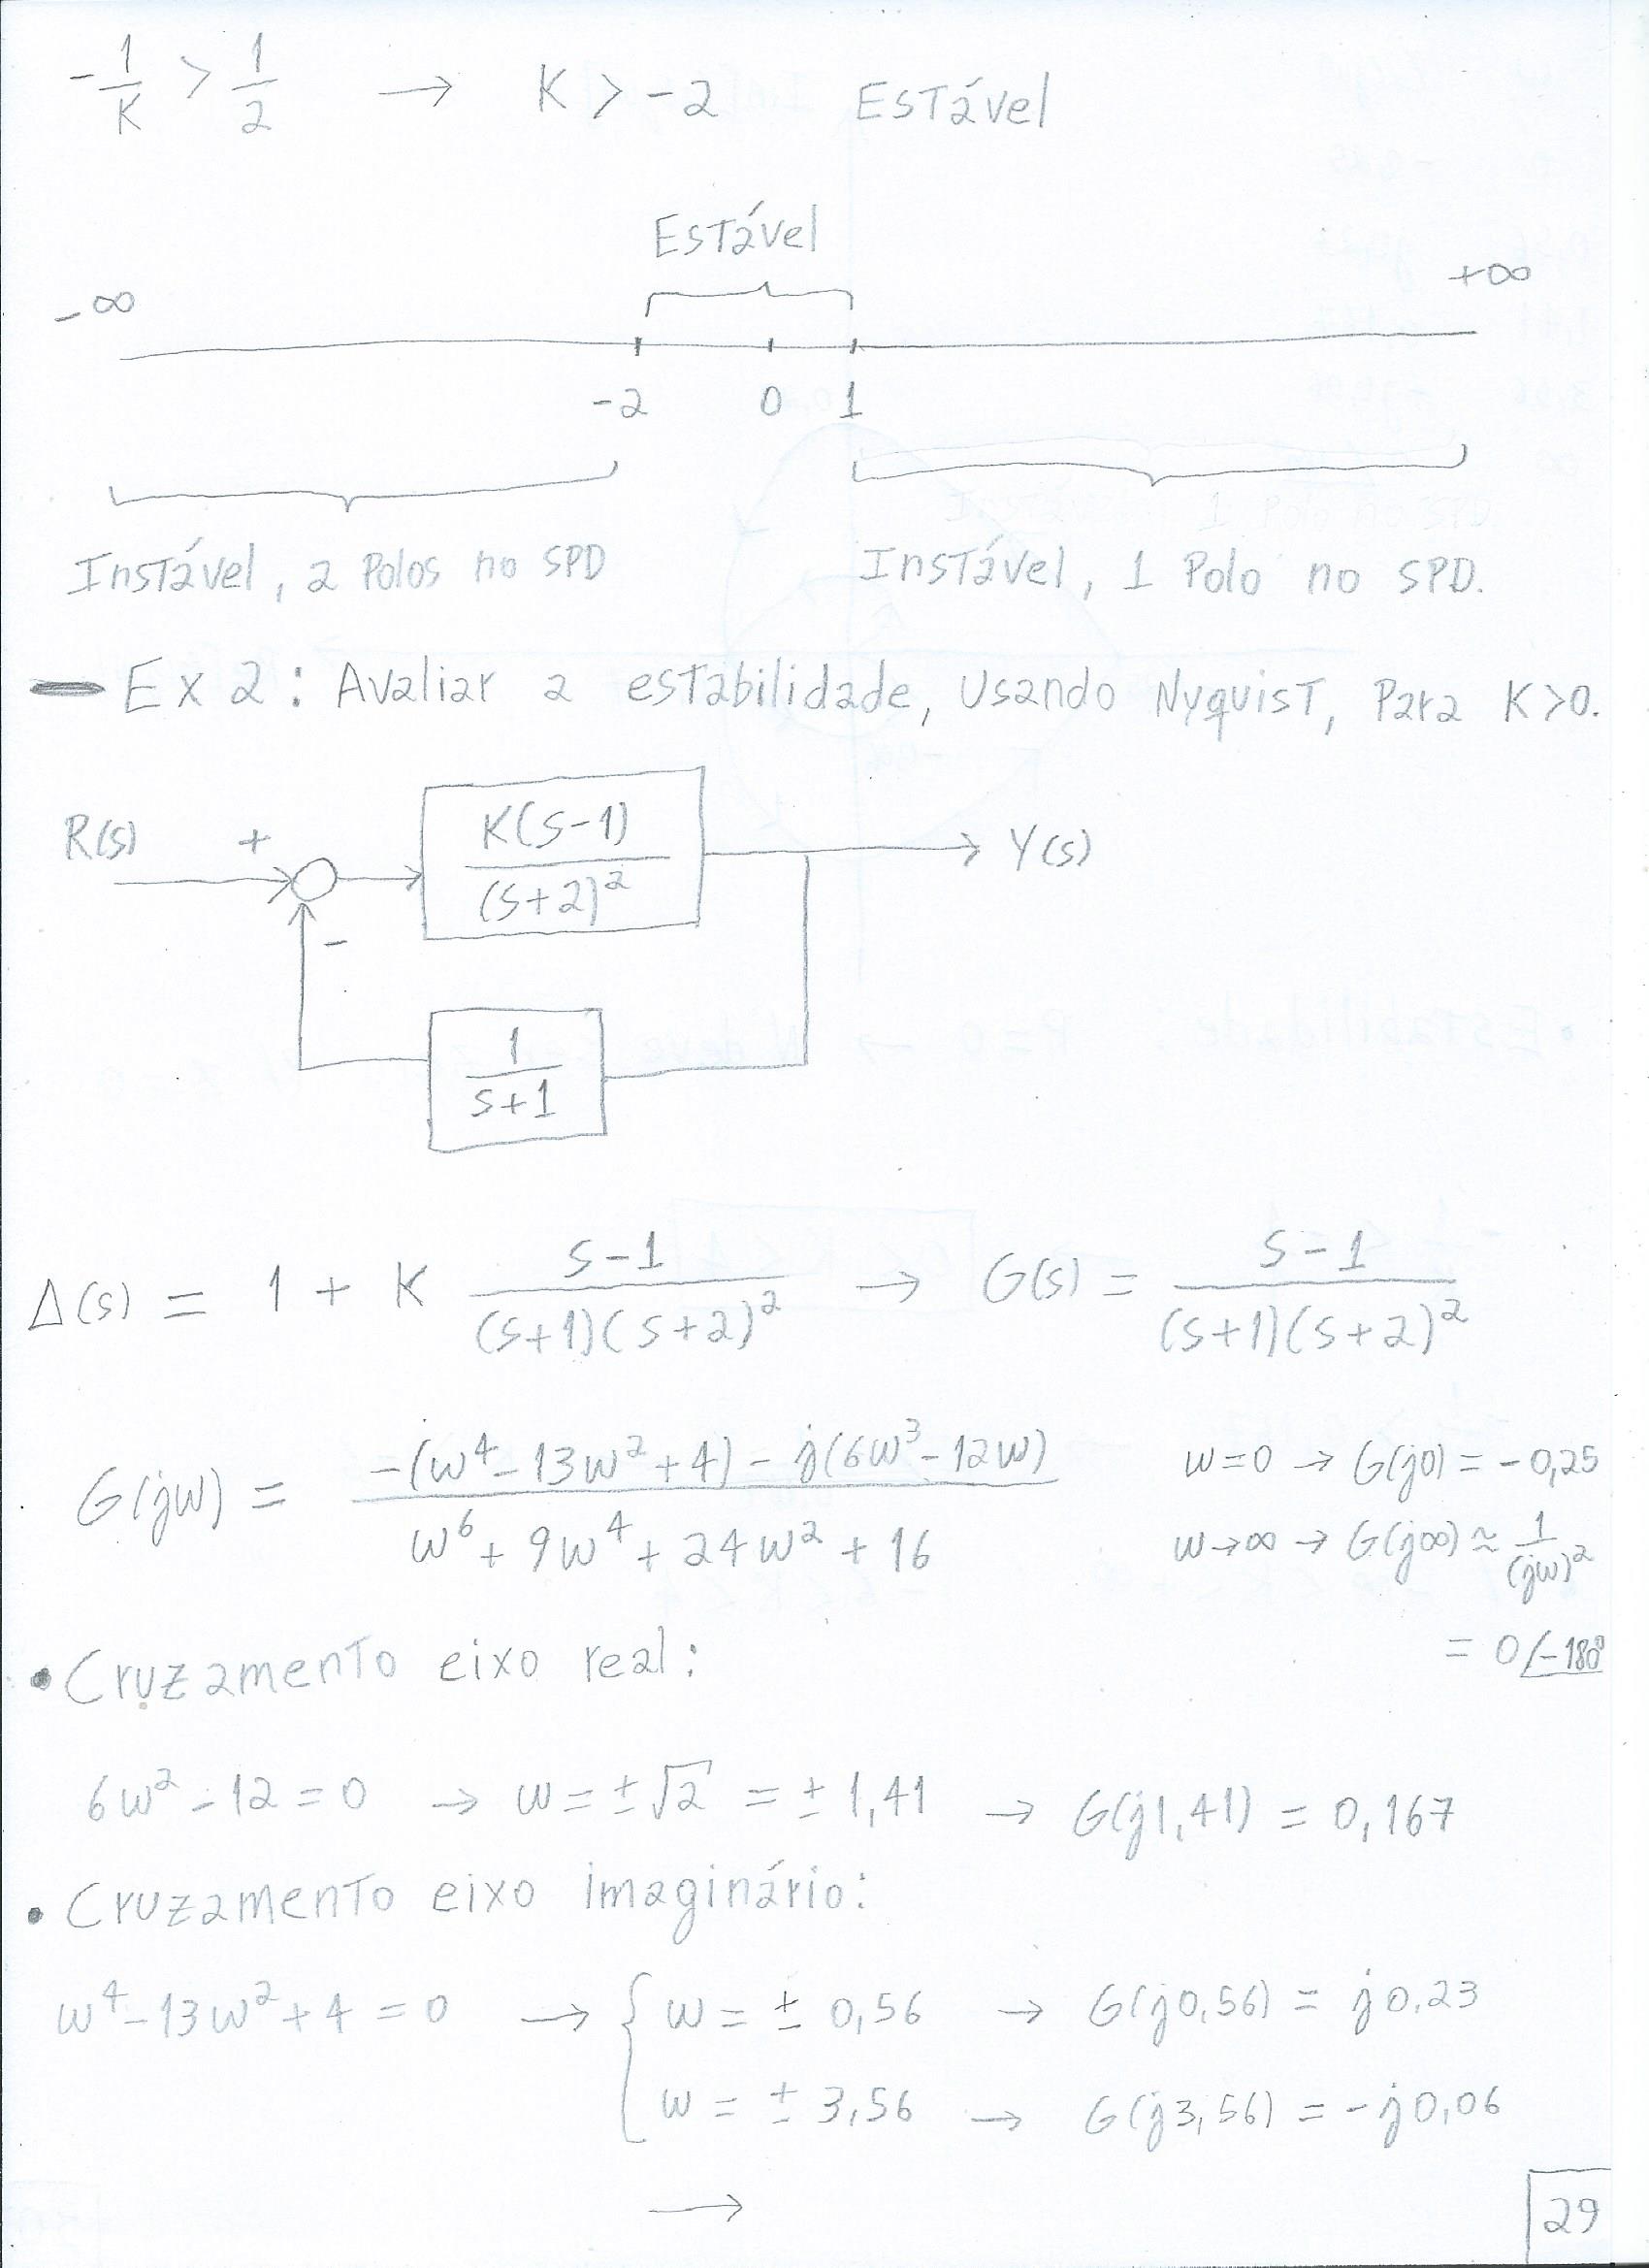 -1/K > 1/2 → K > -2 Estável
Estável
-∞ +∞
-2 0 1
Instável, 2 Polos no SPD Instável, 1 Polo no SPD.
- Ex 2: Avaliar a estabilidade, Usando Nyquist, Para K>0.
R(s) + K(s-1)/(s+2)² Y(s)
-
1/(s+1)
Δ(s) = 1 + K (s-1)/((s+1)(s+2)²) → G(s) = (s-1)/((s+1)(s+2)²)
G(jw) = (-(w⁴-13w²+4) - j(6w³-12w))/(w⁶+9w⁴+24w²+16)
w=0 → G(j0) = -0,25
w→∞ → G(j∞) ≈ 1/(jw)²
= 0∠-180°
• Cruzamento eixo real:
6w²-12=0 → w=±√2 = ±1,41 → G(j1,41) = 0,167
• Cruzamento eixo imaginário:
w⁴-13w²+4=0 → { w = ± 0,56 → G(j0,56) = j0,23
w = ± 3,56 → G(j3,56) = -j0,06
→
29